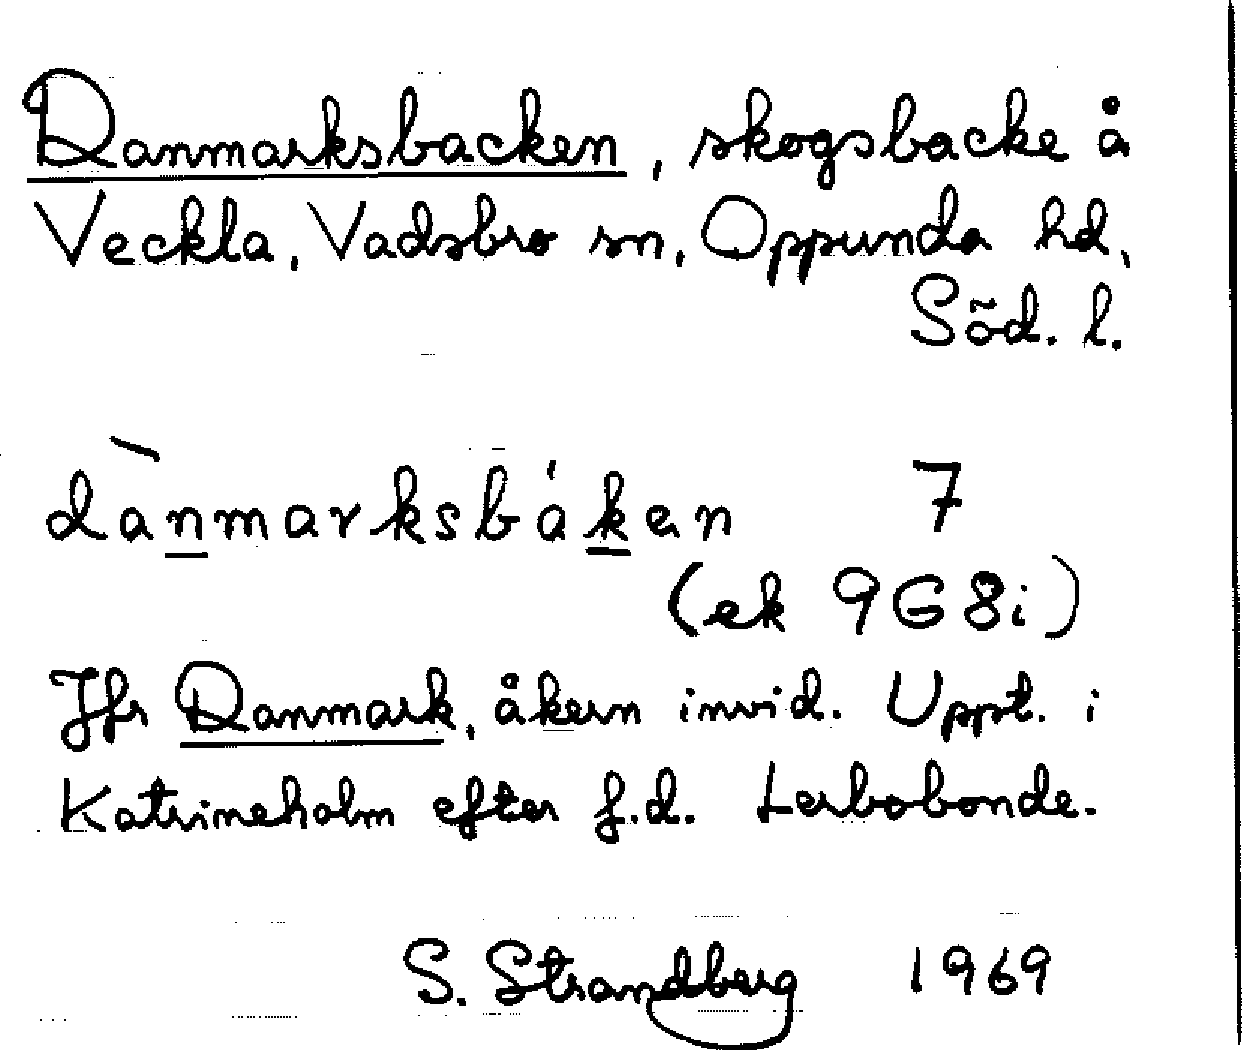 Danmarksbacken, skogsbacke å
Veckla, Vadsbro sn, Oppunda hd,
Söd. l.
dànmarksbáken 7
(ek 9G8i)
Jfr Danmark, åkern invid. Uppt. i
Katrineholm efter f.d. Lerbobonde.
S. Strandberg 1969